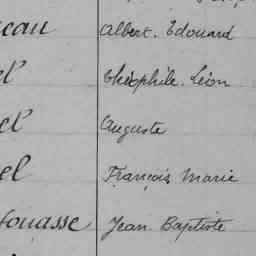 eau Albert. Edouard
el Théophile. Léon
el Auguste
el François Marie
fouasse Jean Baptiste